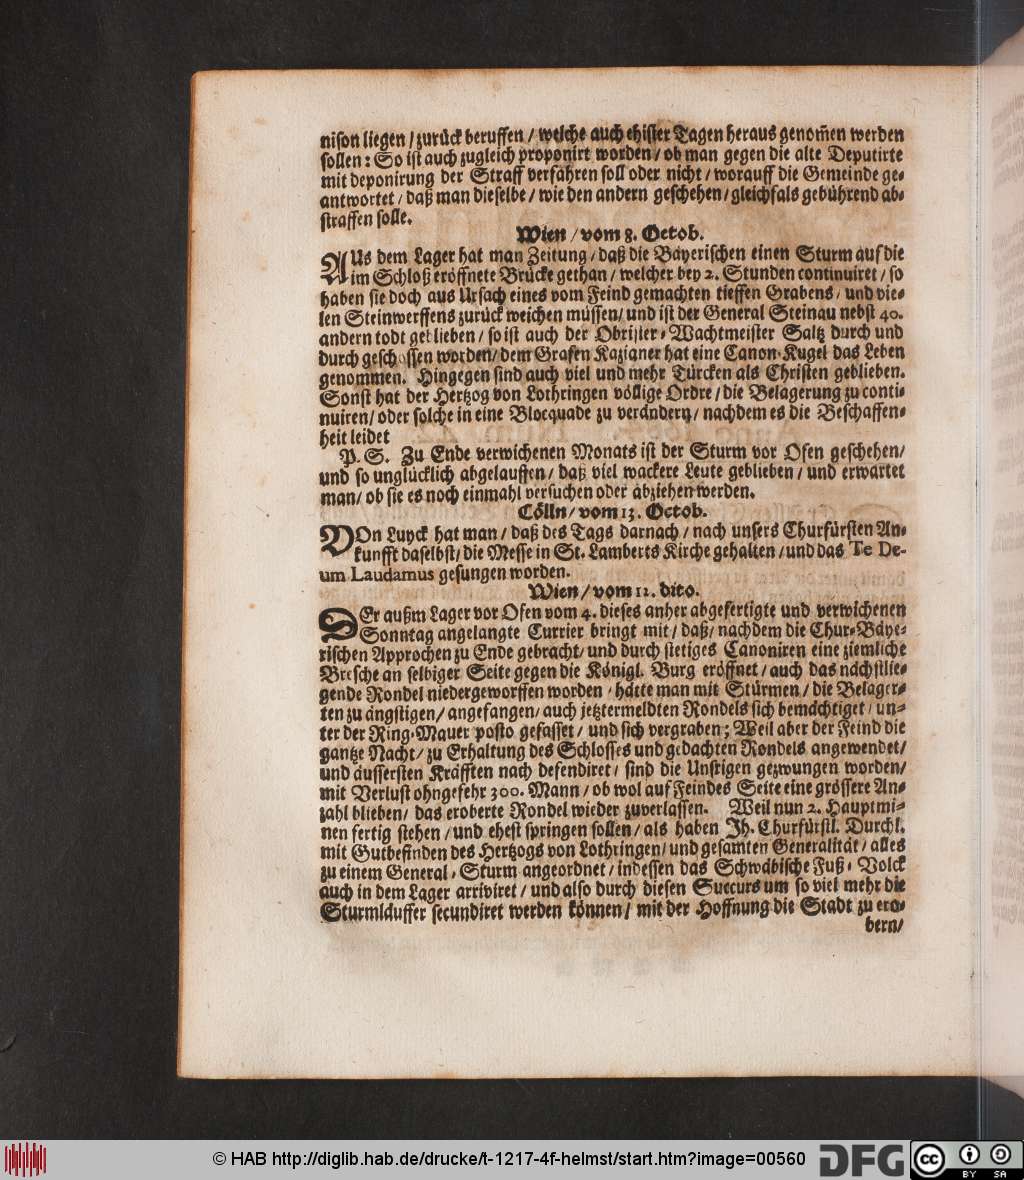 nison liegen / zurück beruffen / welche auch ehister Tagen heraus genom̃en werden
sollen: So ist auch zugleich proponirt worden / ob man gegen die alte Deputirte
mit deponirung der Straff verfahren soll oder nicht / worauff die Gemeinde ge-
antwortet / daß man dieselbe / wie den andern geschehen / gleichfals gebührend ab-
straffen solle.
Wien / vom 8. Octob.
AUs dem Lager hat man Zeitung / daß die Bäyerischen einen Sturm auf die
im Schloß eröffnete Brücke gethan / welcher bey 2. Stunden continuiret / so
haben sie doch aus Ursach eines vom Feind gemachten tieffen Grabens / und vie-
len Steinwerffens zurück weichen müssen / und ist der General Steinau nebst 40.
andern todt geblieben / so ist auch der Obrister-Wachtmeister Saltz durch und
durch geschossen worden / dem Grafen Kazianer hat eine Canon-Kugel das Leben
genommen. Hingegen sind auch viel und mehr Türcken als Christen geblieben.
Sonst hat der Hertzog von Lothringen völlige Ordre / die Belagerung zu conti-
nuiren / oder solche in eine Blocquade zu verändern / nachdem es die Beschaffen-
heit leidet
P. S. Zu Ende verwichenen Monats ist der Sturm vor Ofen geschehen /
und so unglücklich abgelauffen / daß viel wackere Leute geblieben / und erwartet
man / ob sie es noch einmahl versuchen oder abziehen werden.
Cölln / vom 13. Octob.
VOn Luyck hat man / daß des Tags darnach / nach unsers Churfürsten An-
kunfft daselbst / die Messe in St. Lamberts Kirche gehalten / und das Te De-
um Laudamus gesungen worden.
Wien / vom 11. dito.
DEr außm Lager vor Ofen vom 4. dieses anher abgefertigte und verwichenen
Sonntag angelangte Currier bringt mit / daß / nachdem die Chur-Bäye-
rischen Approchen zu Ende gebracht / und durch stetiges Canoniren eine ziemliche
Bresche an selbiger Seite gegen die Königl. Burg eröffnet / auch das nächstlie-
gende Rondel niedergeworffen worden / hätte man mit Stürmen / die Belager-
ten zu ängstigen / angefangen / auch jetztermeldten Rondels sich bemächtiget / un-
ter der Ring-Mauer posto gefasset / und sich vergraben; Weil aber der Feind die
gantze Nacht / zu Erhaltung des Schlosses und gedachten Rondels angewendet /
und äussersten Kräfften nach defendiret / sind die Unsrigen gezwungen worden /
mit Verlust ohngefehr 300. Mann / ob wol auf Feindes Seite eine grössere An-
zahl blieben / das eroberte Rondel wieder zuverlassen. Weil nun 2. Hauptmi-
nen fertig stehen / und ehest springen sollen / als haben Ih. Churfürstl. Durchl.
mit Gutbefinden des Hertzogs von Lothringen / und gesamten Generalität / alles
zu einem General-Sturm angeordnet / indessen das Schwäbische Fuß-Volck
auch in dem Lager arriviret / und also durch diesen Succurs um so viel mehr die
Sturmläuffer secundiret werden können / mit der Hoffnung die Stadt zu ero-
bern /
© HAB http://diglib.hab.de/drucke/t-1217-4f-helmst/start.htm?image=00560
DFG
cc
BY SA